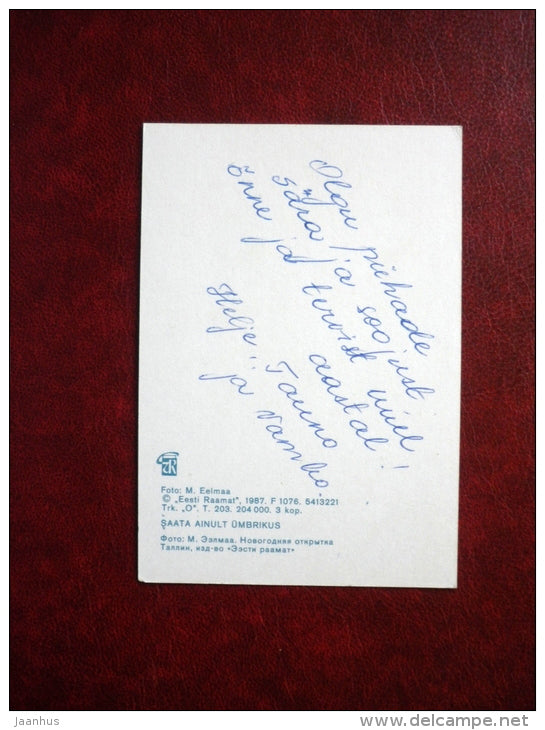 Olgu pühade
sära ja soojust
õnne ja tervist uuel
aastal!
Helje, Tauno
ja Rambo
ER
Foto: M. Eelmaa
© „Eesti Raamat", 1987. F 1076. 5413221
Trk. „O". T. 203. 204 000. 3 kop.
SAATA AINULT ÜMBRIKUS
Фото: М. Ээлмаа. Новогодняя открытка
Таллин, изд-во «Ээсти раамат»
Jaanhus
www.delcampe.net